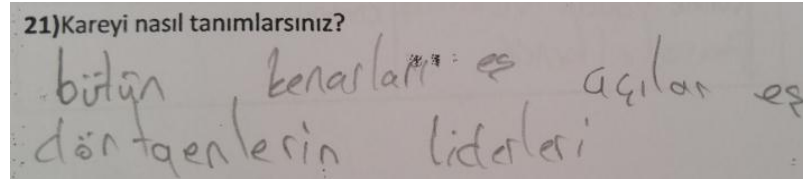 21)Kareyi nasıl tanımlarsınız?
bütün kenarları eş açılar eş
dörtgenlerin liderleri